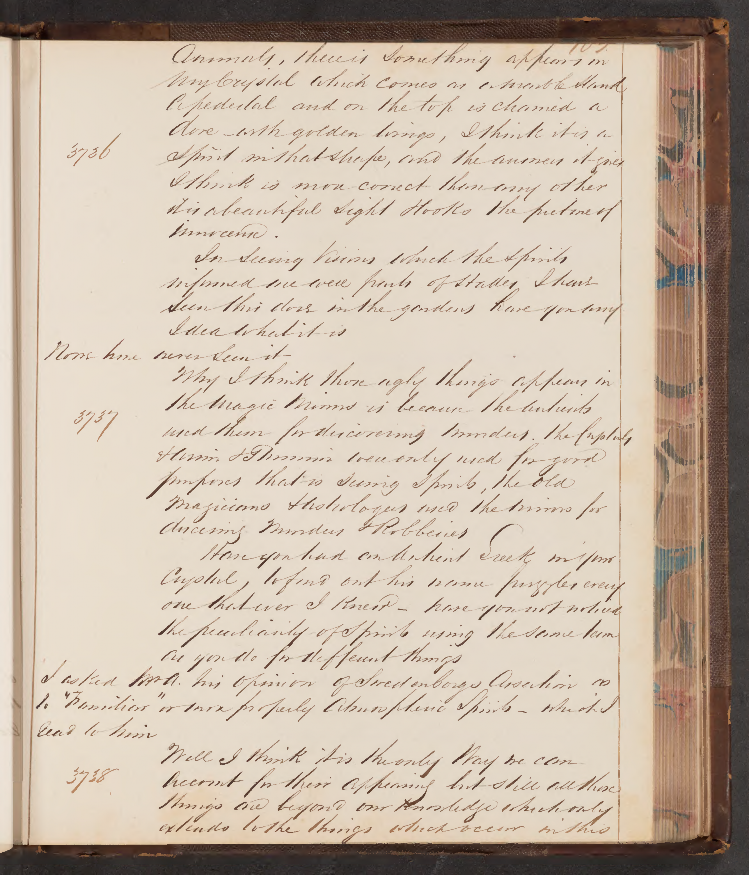 Animals, there is Something appears in
my Crystal which comes as a marble Stand
a pedestal and on the top is chained a
dove with golden wings, I think it is a
3736 Spirit in that shape, and the answers it gives
I think is more correct than any other
it is a beautiful Sight & looks the picture of
innocence.
In Seeing Visions which the Spirits
informed me were parts of Hades, I have
Seen this dove in the gardens have you any
Idea what it is
never Seen it
Why I think those ugly things appears in
the Magic Mirrors is because the antients
3737 used them for discovering Murders. the Crystals
& Urim & Thummim were only used for good
purposes that is Seeing Spirits, the old
Magicians & Astrologers used the Mirrors for
Murders & Robberies
Have you had an Antient Greek in your
Crystal, to find out his name puzzles every
one that ever I Knew - have you not noticed
the peculiarity of Spirits using the same term
as you do for different things
I asked his opinion of Swedenborgs Assertion as
to "Familiar" or more properly Atmospheric Spirits - which I
read to him
Well I think it is the only Way we can
3738 account for their appearing but still all those
things are beyond our Knowledge which only
extends to the things which occur in this